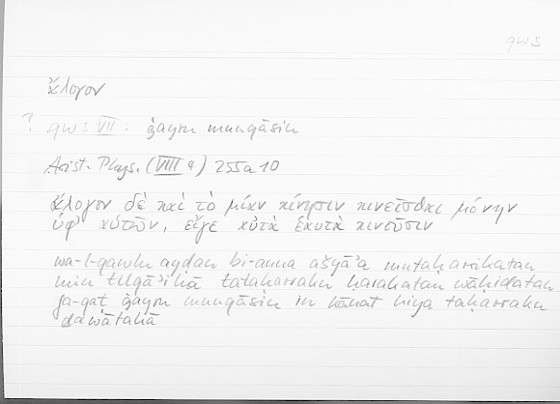 qws
ἄλογον
? qws VII. ġayru munqāsin
Arist. Phys. (VIII 4) 255a10
ἄλογον δὲ καὶ τὸ μίαν κίνησιν κινεῖσθαι μόνην
ὑφ' αὑτῶν, εἴγε αὐτὰ ἑαυτὰ κινοῦσιν
wa-l-qawlu ayḍan bi-anna ašyāʾa mutaḥarrikatan
min tilqāʾihā tataḥarraku ḥarakatan wāḥidatan
fa-qaṭ ġayru munqāsin in kānat hiya taḥarraku
ḏawātahā